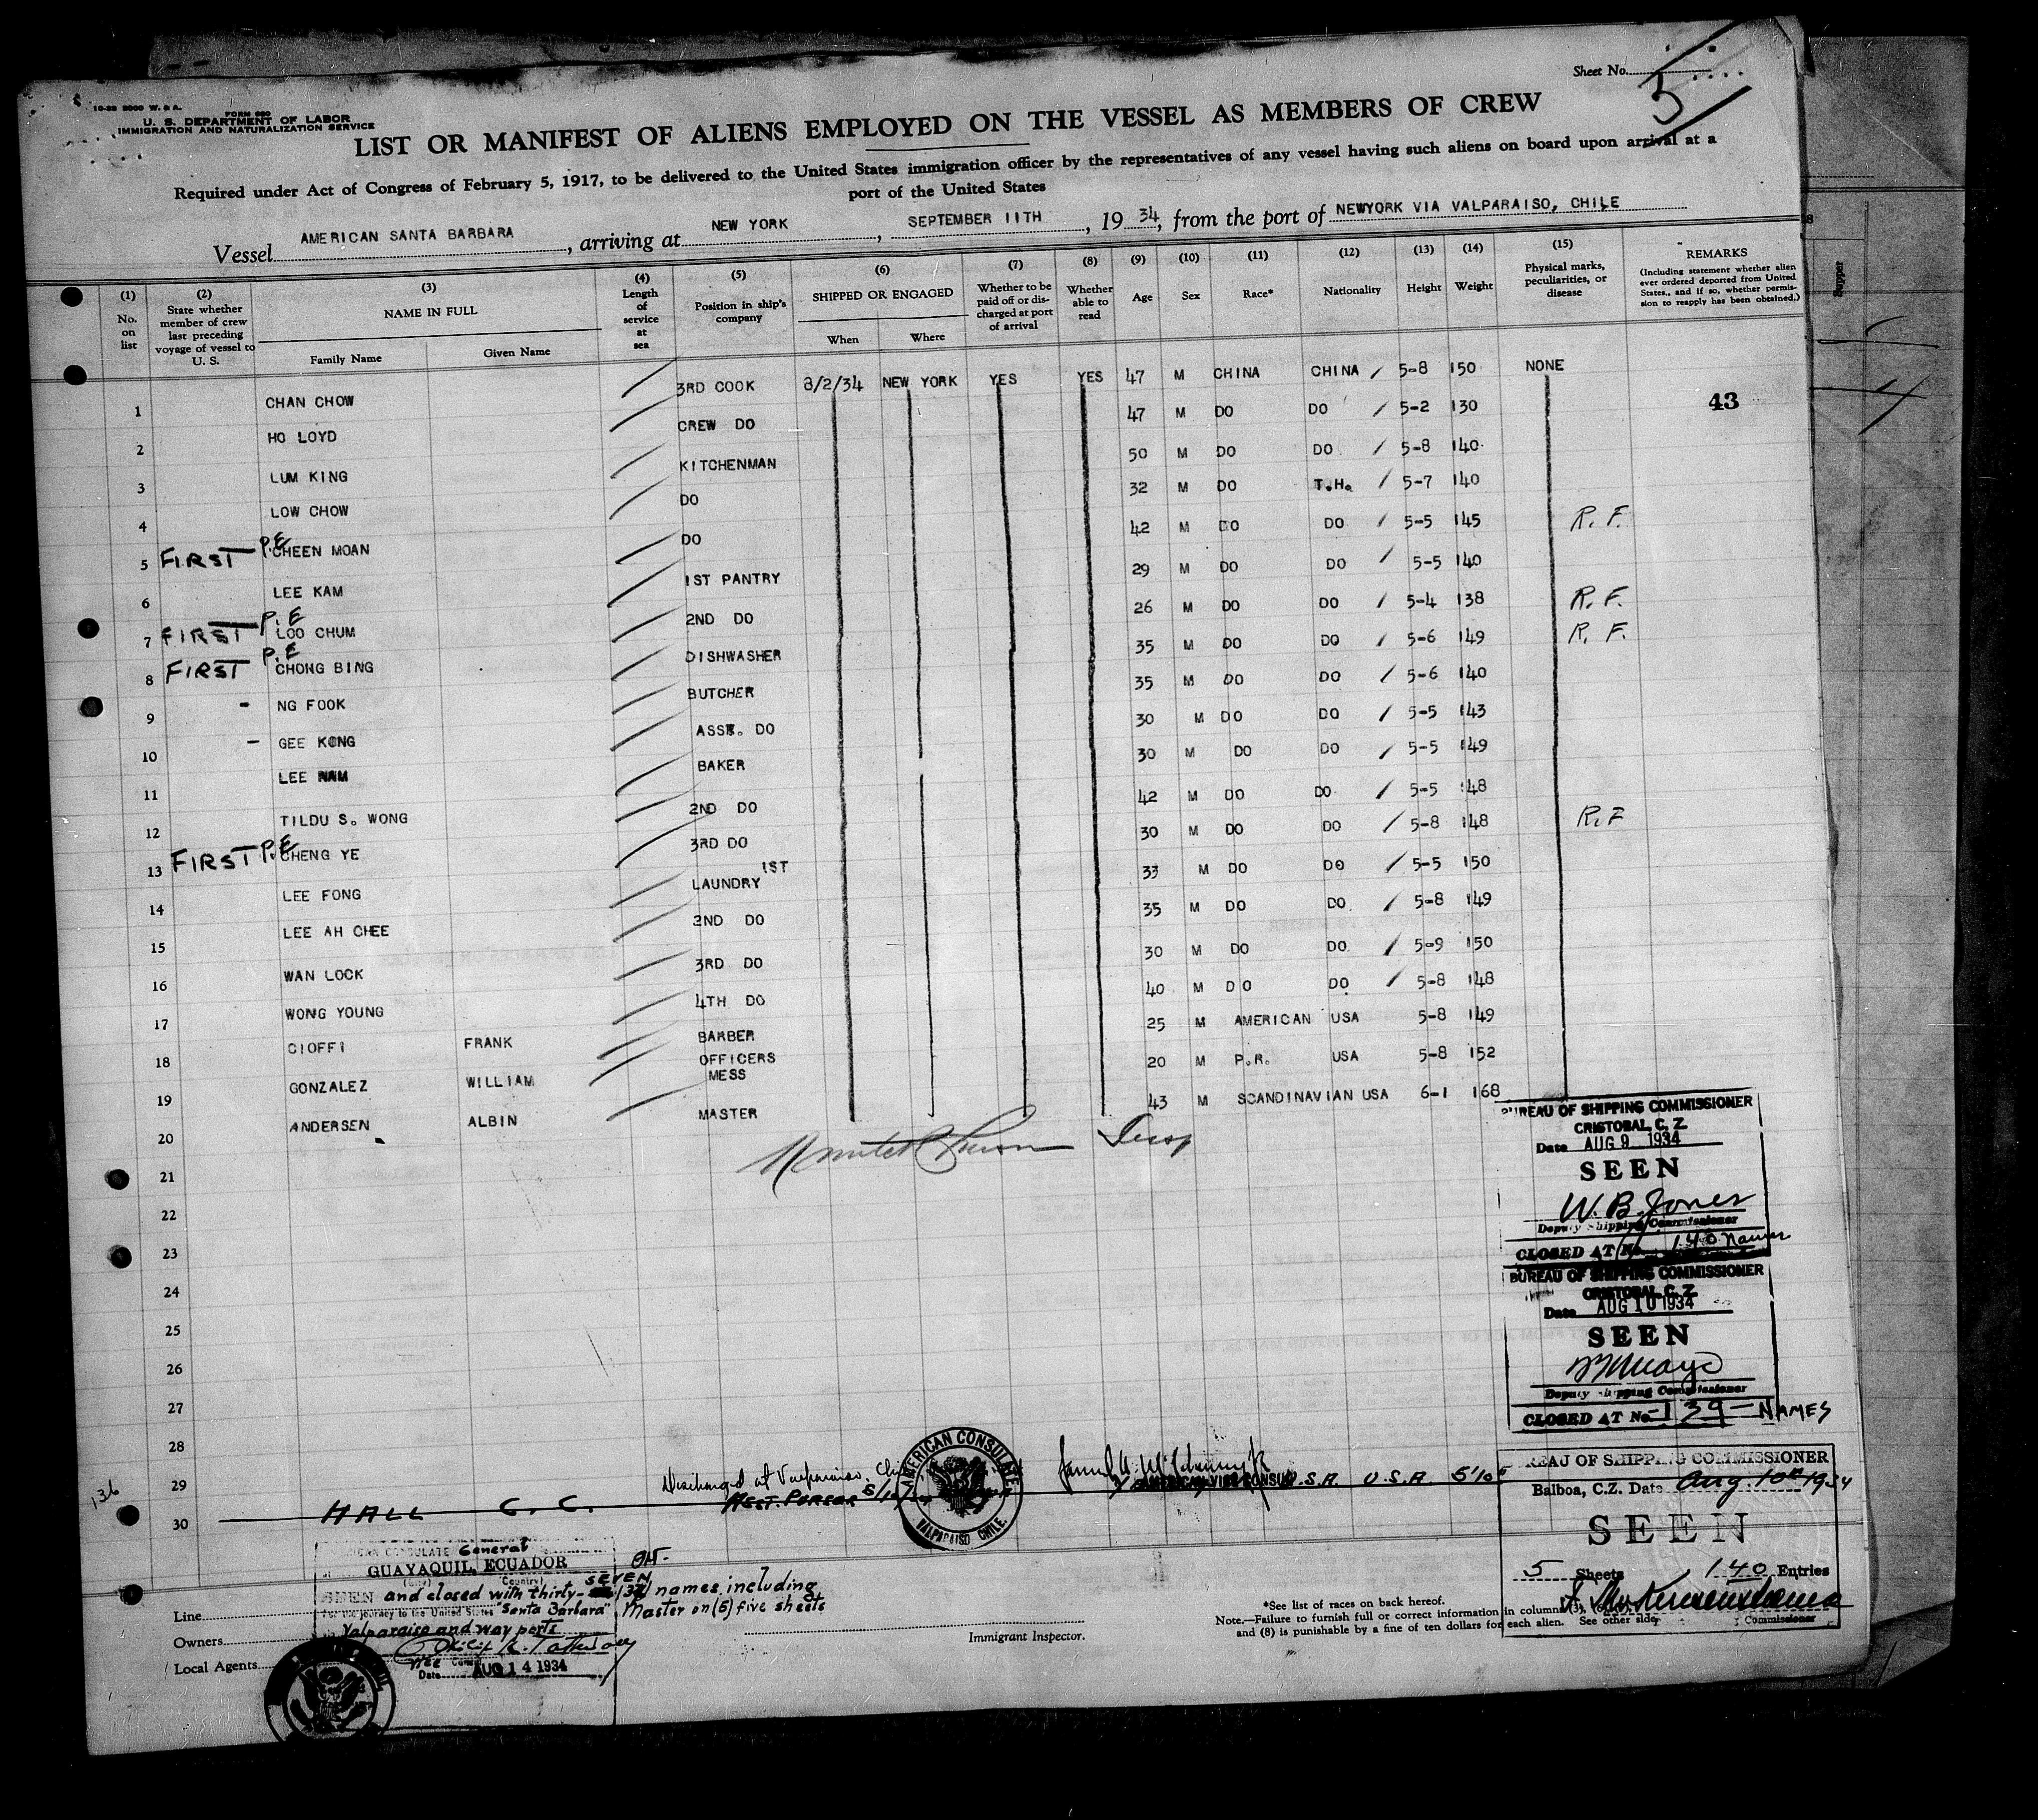 Sheet No. 5
10-22 2000 W. & A.
FORM 680
U. S. DEPARTMENT OF LABOR
IMMIGRATION AND NATURALIZATION SERVICE
LIST OR MANIFEST OF ALIENS EMPLOYED ON THE VESSEL AS MEMBERS OF CREW
Required under Act of Congress of February 5, 1917, to be delivered to the United States immigration officer by the representatives of any vessel having such aliens on board upon arrival at a
port of the United States
Vessel AMERICAN SANTA BARBARA, arriving at NEW YORK, SEPTEMBER 11TH, 1934, from the port of NEWYORK VIA VALPARAISO, CHILE
(1) No. on list
(2) State whether member of crew last preceding voyage of vessel to U. S.
(3) NAME IN FULL
Family Name Given Name
(4) Length of service at sea
(5) Position in ship's company
(6) SHIPPED OR ENGAGED
When Where
(7) Whether to be paid off or discharged at port of arrival
(8) Whether able to read
(9) Age
(10) Sex
(11) Race*
(12) Nationality
(13) Height
(14) Weight
(15) Physical marks, peculiarities, or disease
REMARKS
(Including statement whether alien ever ordered deported from United States, and if so, whether permission to reapply has been obtained.)
43
1 CHAN CHOW 3RD COOK 8/2/34 NEW YORK YES YES 47 M CHINA CHINA 5-8 150 NONE
2 HO LOYD CREW DO 47 M DO DO 5-2 130
3 LUM KING KITCHENMAN 50 M DO DO 5-8 140
4 LOW CHOW DO 32 M DO T.H. 5-7 140
5 FIRST P.E CHEEN MOAN DO 42 M DO DO 5-5 145 R.F.
6 LEE KAM 1ST PANTRY 29 M DO DO 5-5 140
7 FIRST P.E LOO CHUM 2ND DO 26 M DO DO 5-4 138 R.F.
8 FIRST P.E CHONG BING DISHWASHER 35 M DO DO 5-6 149 R.F.
9 - NG FOOK BUTCHER 35 M DO DO 5-6 140
10 - GEE KONG ASST. DO 30 M DO DO 5-5 143
11 LEE NAM BAKER 30 M DO DO 5-5 149
12 TILDU S. WONG 2ND DO 42 M DO DO 5-5 148
13 FIRST P.E CHENG YE 3RD DO 30 M DO DO 5-8 148 R.F
14 LEE FONG LAUNDRY 1ST 33 M DO DO 5-5 150
15 LEE AH CHEE 2ND DO 35 M DO DO 5-8 149
16 WAN LOCK 3RD DO 30 M DO DO 5-9 150
17 WONG YOUNG 4TH DO 40 M DO DO 5-8 148
18 CIOFFI FRANK BARBER 25 M AMERICAN USA 5-8 149
19 GONZALEZ WILLIAM OFFICERS MESS 20 M P.R. USA 5-8 152
20 ANDERSEN ALBIN MASTER 43 M SCANDINAVIAN USA 6-1 168
21
22
23
24
25
26
27
28
29
30
BUREAU OF SHIPPING COMMISSIONER
CRISTOBAL, C. Z.
Date AUG 9 1934
SEEN
W. B. Jones
Deputy Shipping Commissioner
CLOSED AT No. 140 Names
BUREAU OF SHIPPING COMMISSIONER
CRISTOBAL, C. Z.
Date AUG 10 1934
SEEN
Deputy Shipping Commissioner
CLOSED AT No. 139 NAMES
136
Discharged at Valparaiso, Chile
HALL C. C. ASST. PURSER U.S.A. U.S.A. 5'10
AMERICAN CONSULATE
VALPARAISO CHILE.
AMERICAN VICE CONSUL
REAU OF SHIPPING COMMISSIONER
Balboa, C.Z. Date Aug. 10th 1934
SEEN
5 Sheets 140 Entries
Commissioner
CONSULATE General
GUAYAQUIL, ECUADOR
(City) (Country)
SEEN and closed with thirty-seven (137) names, including
For the journey to the United States "Santa Barbara" Master on (5) five sheets
Valparaiso and way ports
Vice Consul
Date AUG 14 1934
Line
Owners
Local Agents
Immigrant Inspector.
*See list of races on back hereof.
Note.—Failure to furnish full or correct information in columns (3), (6),
and (8) is punishable by a fine of ten dollars for each alien. See other side.
Supper